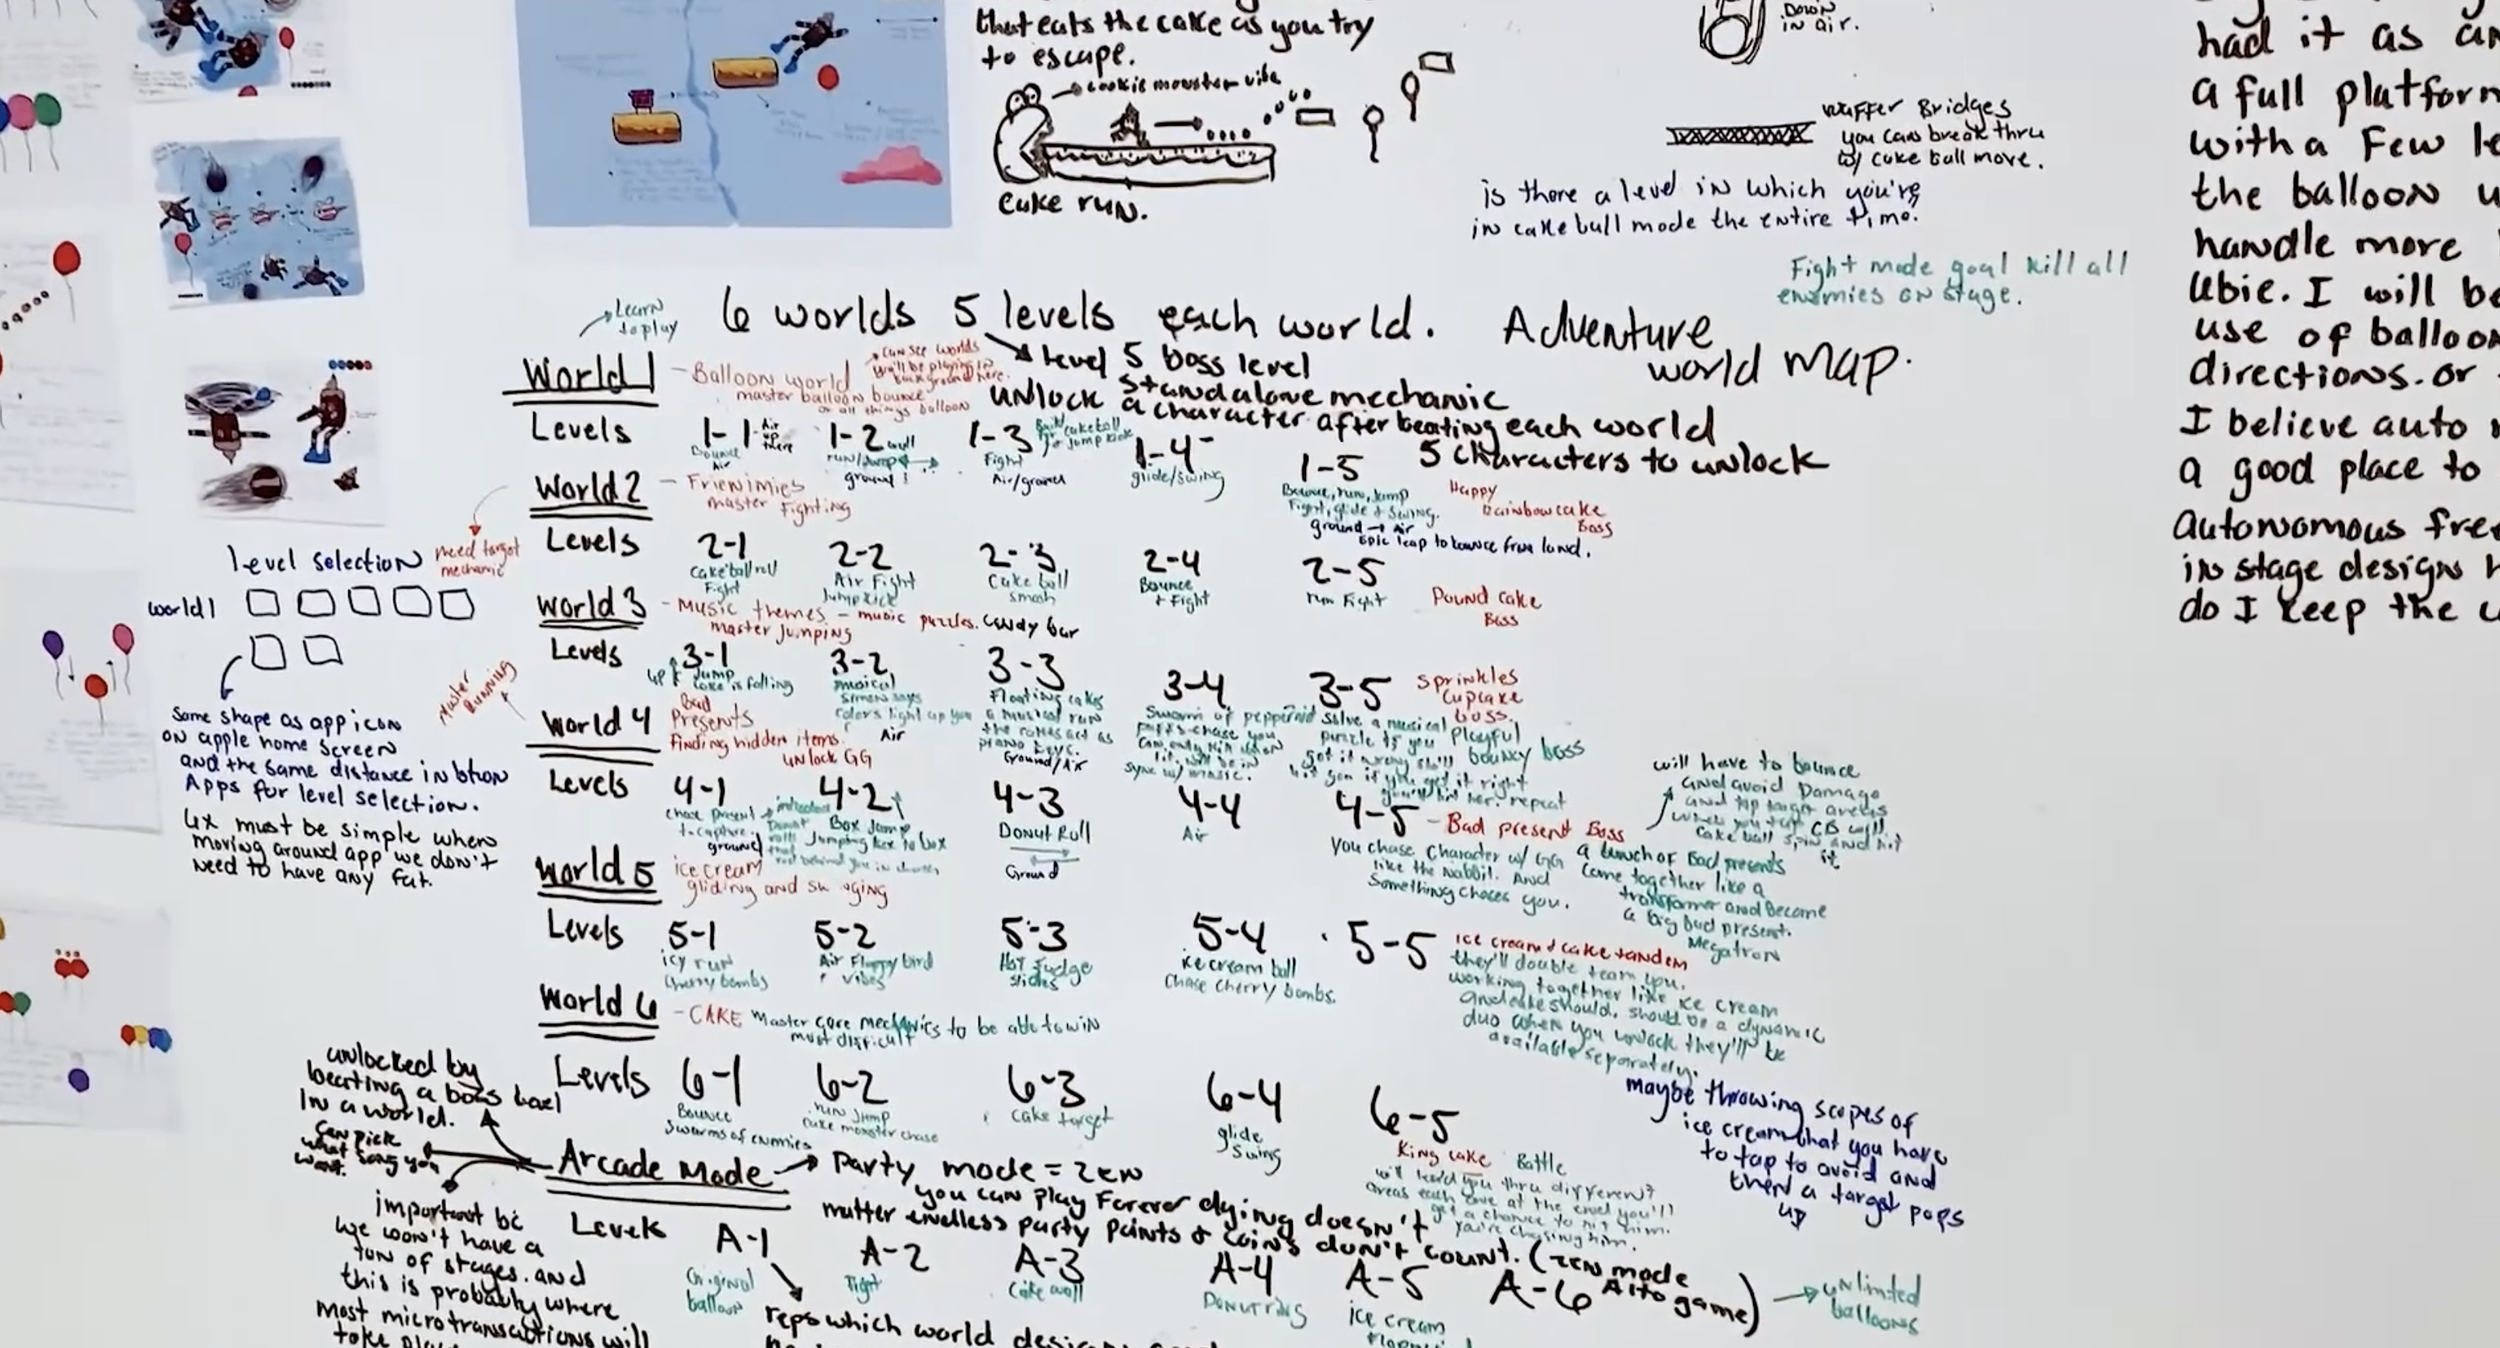 that eats the cake as you try
to escape.
cookie monster vibe
cake run.
Down
in air.
waffer Bridges
you can break thru
w/ cake ball move.
is there a level in which you're
in cake ball mode the entire time.
Fight mode goal kill all
enemies on stage.
had it as an
a full platform
with a Few le
the balloon u
handle more
Ubie. I will be
use of balloon
directions. or
I believe auto
a good place to
autonomous free
in stage design
do I keep the
Learn
to play
6 worlds 5 levels each world.
Level 5 boss level
Adventure
world Map.
unlock standalone mechanic
a character after beating each world
5 characters to unlock
World 1
- Balloon world
master balloon bounce
or all things balloon
can see worlds
we'll be playing in
background here.
Levels
1-1 Air up there
Bounce
Air
1-2
run/jump
ground
1-3
Fight
Air/ground
cake ball
jump kick
1-4
glide/swing
1-5
Bounce, run, jump
Fight, glide + swing.
ground → Air
Epic leap to bounce from land.
Happy
Rainbow cake
Boss
World 2
- Frienimies
master Fighting
need target
mechanic
Levels
2-1
Cake ball roll
Fight
2-2
Air Fight
Jump kick
2-3
Cake ball
smash
2-4
Bounce
+ Fight
2-5
run Fight
Pound cake
Boss
World 3
- Music themes - music puzzles. candy bar
master jumping
Levels
3-1
up jump
cake is falling
3-2
musical
Simon says
colors light up you
Air
3-3
Floating cakes
a musical run
the cakes act as
piano keys.
Ground/Air
3-4
Swarm of peppermint
puffs chase you
can only hit when
lit. will be in
sync w/ music.
3-5
solve a musical
puzzle if you
get it wrong she'll
hit you if you get it right
you'll hit her. repeat
Sprinkles
Cupcake
boss.
playful
bouncy boss
Master
Running
World 4
Bad
Presents
Finding hidden items.
unlock GG
Levels
4-1
chase present
to capture.
ground
4-2
Box Jump
Jumping box to box
4-3
Donut Roll
Ground
4-4
Air
4-5 - Bad present Boss
You chase character w/ GG
like the rabbit. And
something chases you.
a bunch of Bad presents
come together like a
transformer and become
a big bad present.
Megatron
will have to bounce
and avoid Damage
and tap target areas
when you tap CB will
cake ball spin and hit
it
World 5
ice cream
gliding and swinging
Levels
5-1
icy run
cherry bombs
5-2
Air Flappy bird
vibes
5-3
Hot Fudge
slides
5-4
ice cream ball
chase cherry bombs.
5-5
ice cream + cake tandem
they'll double team you.
working together like ice cream
and cake should, should be a dynamic
duo when you unlock they'll be
available separately.
maybe throwing scopes of
ice cream that you have
to tap to avoid and
then a target pops
up
World 6
- CAKE Master core mechanics to be able to win
most difficult
Levels
6-1
Bounce
swarms of enemies
6-2
run jump
cake monster chase
6-3
cake target
6-4
glide
swing
6-5
King cake Battle
will lead you thru different
areas each one at the end you'll
get a chance to hit him.
You're chasing him.
level selection
world 1
Same shape as app icon
on apple home screen
and the same distance in btwn
Apps for level selection.
Ux must be simple when
moving around app we don't
need to have any fat.
unlocked by
beating a boss level
in a world.
Can pick
what song you
want.
Arcade Mode → Party mode = Zen
you can play Forever dying doesn't
matter endless party Points & Coins don't count. (zen mode
Alto game)
unlimited
balloons
important bc
we won't have a
ton of stages. and
this is probably where
most microtransactions will
take place
Levels
A-1
Original
balloon
A-2
Fight
A-3
Cake wall
A-4
Donut ring
A-5
ice cream
A-6
reps which world design